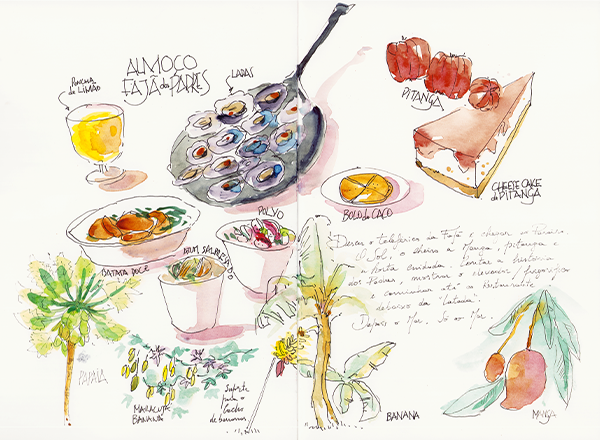 ALMOÇO
FAJÃ dos PADRES
PONCHA
de LIMÃO
LAPAS
PITANGA
CHEESE CAKE
de PITANGA
BOLO do CACO
POLVO
BATATA DOCE
ATUM SALPRESADO
Desceu o teleférico a Fajã e chegar ao Paraíso.
O Sol, o cheiro a Manga, pitanga e
a horta cuidada. Lembrar a história
dos Padres, mostrar o elevador,
e caminhar até ao Restaurante
debaixo da "Latada".
Depois o Mar. Só o Mar.
PAPAIA
MARACUJÁ
BANANA
suporte
para o
cacho
de bananas
BANANA
MANGA